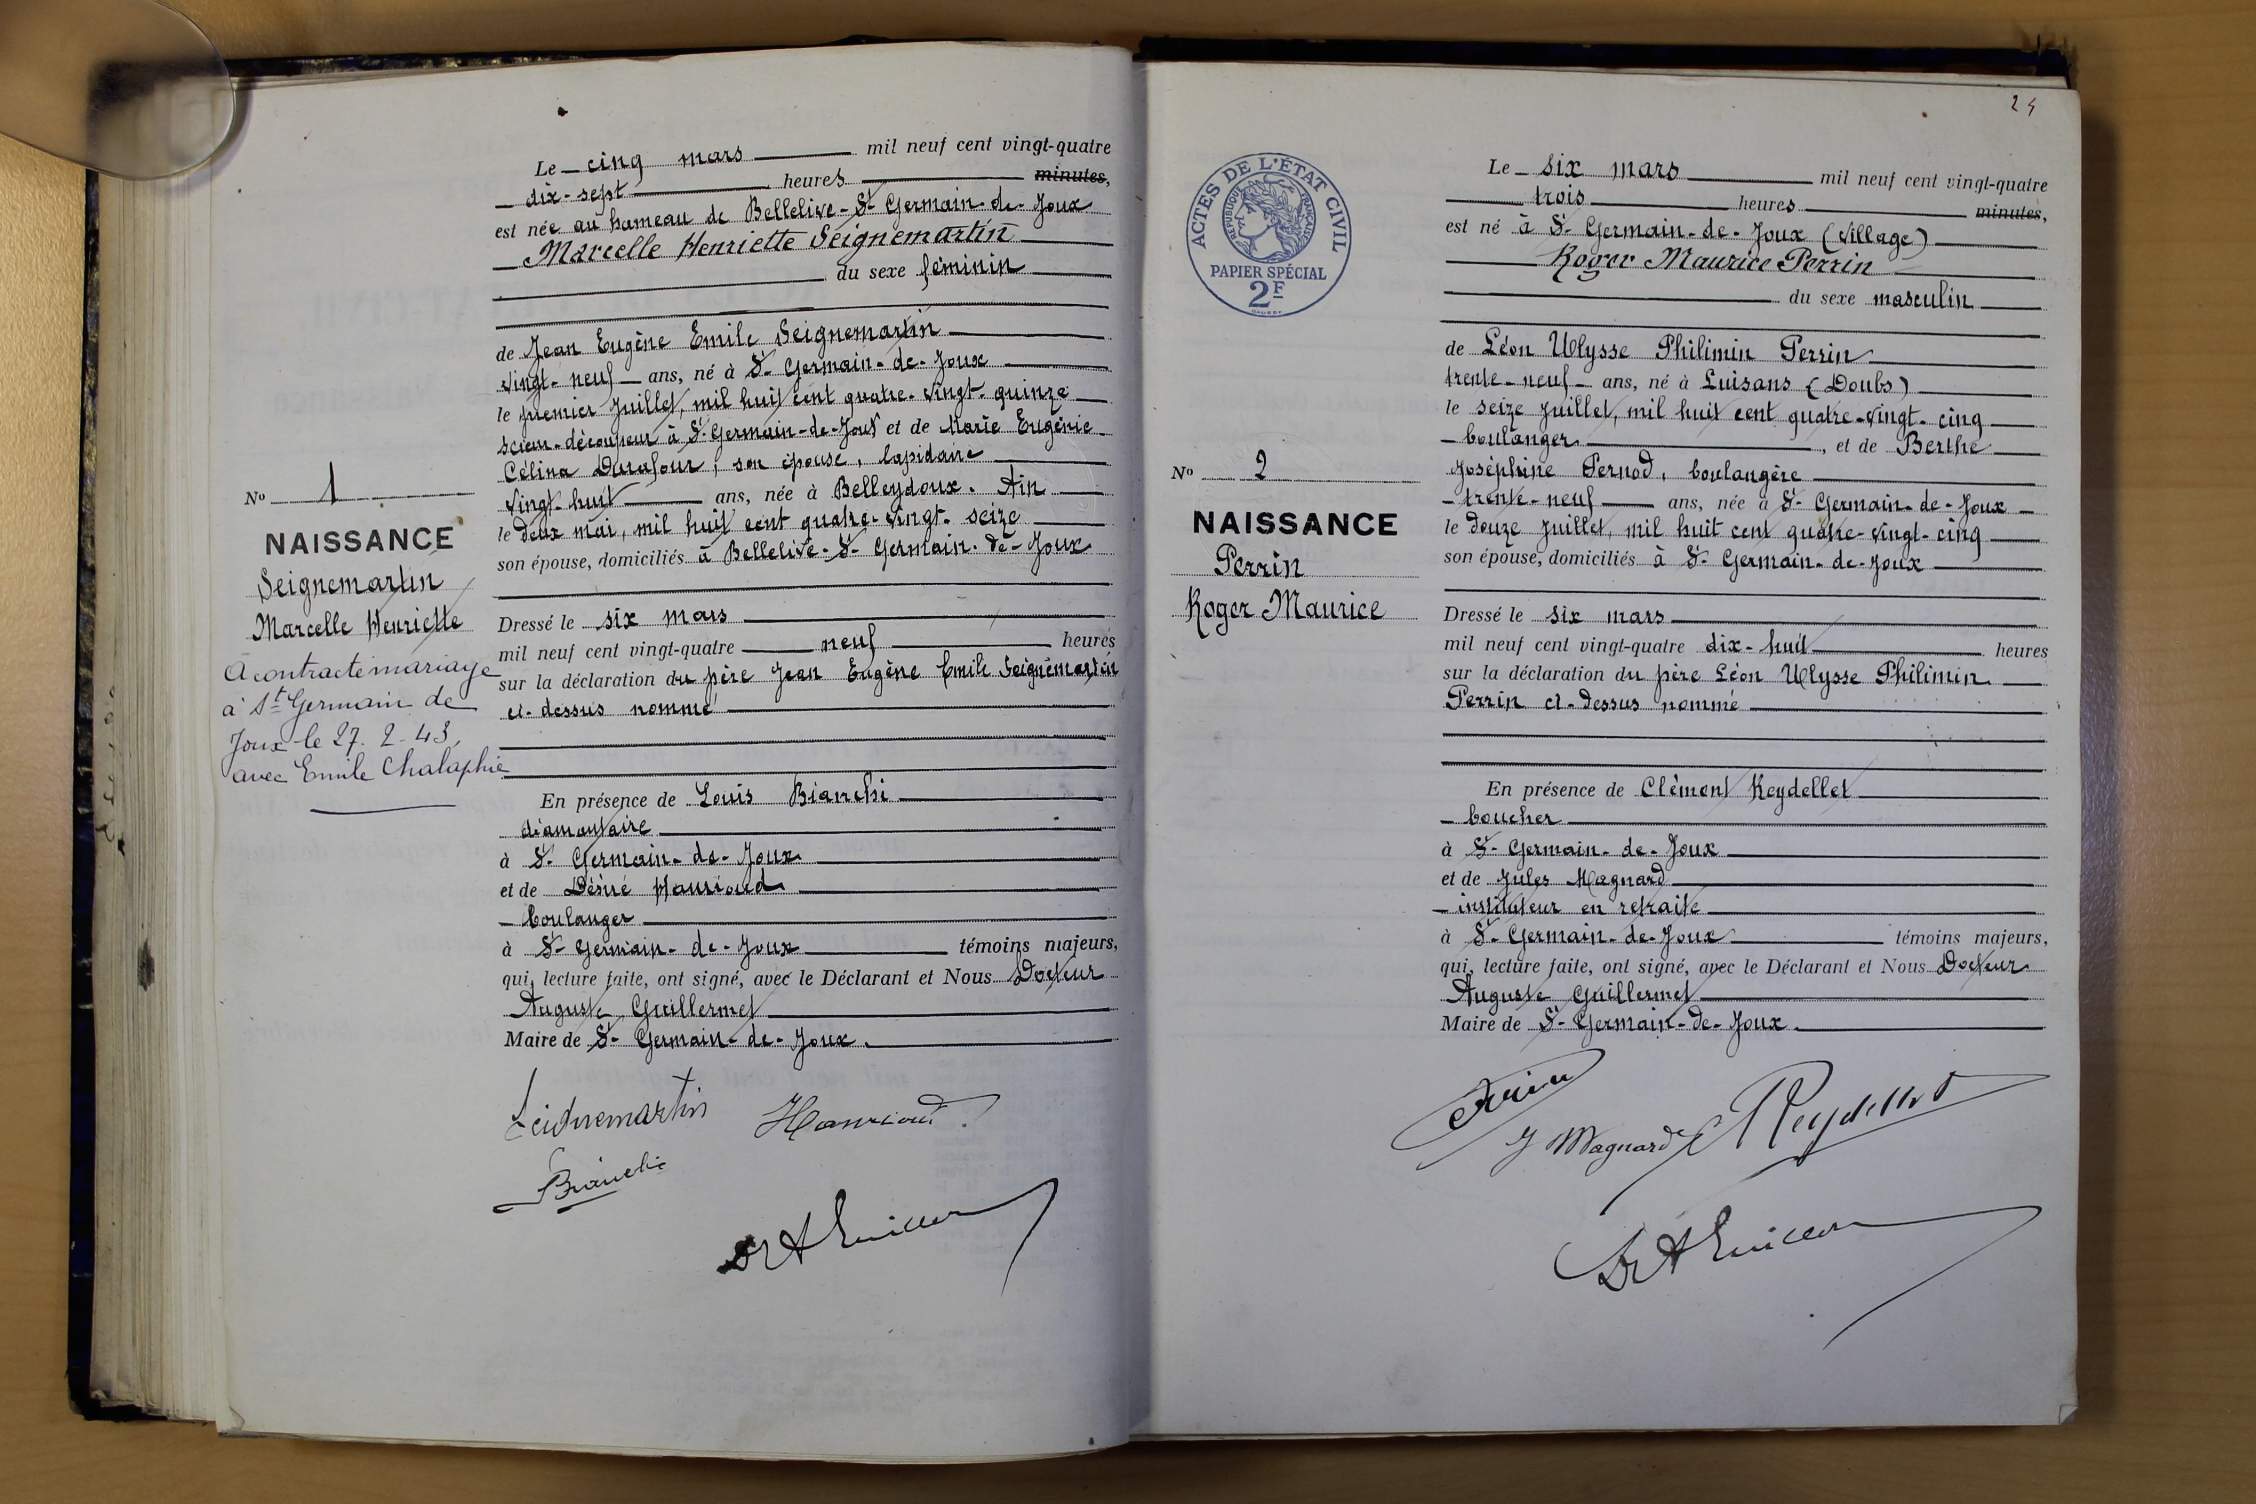 Le cinq mars mil neuf cent vingt-quatre
dix-sept heures minutes,
est née au hameau de Bellelive-St Germain-de-Joux
Marcelle Henriette Seignemartin
du sexe féminin
de Jean Eugène Emile Seignemartin
vingt-neuf ans, né à St Germain-de-Joux
le premier juillet, mil huit cent quatre-vingt-quinze
scieur-découpeur à St Germain-de-Joux et de Marie Eugénie
Célina Durafour, son épouse, lapidaire
vingt-huit ans, née à Belleydoux. Ain
le deux mai, mil huit cent quatre-vingt-seize
son épouse, domiciliés à Bellelive-St Germain-de-Joux
No 1
NAISSANCE
Seignemartin
Marcelle Henriette
A contracté mariage
à St Germain de
Joux le 27.2.43,
avec Emile Chalaphie
Dressé le six mars
mil neuf cent vingt-quatre neuf heures
sur la déclaration du père Jean Eugène Emile Seignemartin
ci-dessus nommé
En présence de Louis Bianchi
diamantaire
à St Germain-de-Joux
et de Désiré Hauriond
boulanger
à St Germain-de-Joux témoins majeurs,
qui, lecture faite, ont signé, avec le Déclarant et Nous Docteur
Auguste Guillermet
Maire de St Germain-de-Joux.
Seignemartin
Bianchi
24
ACTES DE L'ÉTAT CIVIL
RÉPUBLIQUE FRANÇAISE
PAPIER SPÉCIAL
2F
Le six mars mil neuf cent vingt-quatre
trois heures minutes,
est né à St Germain-de-Joux (village)
Roger Maurice Perrin
du sexe masculin
de Léon Ulysse Philimin Perrin
trente-neuf ans, né à Luisans (Doubs)
le seize juillet, mil huit cent quatre-vingt-cinq
boulanger, et de Berthe
Joséphine Pernod, boulangère
trente-neuf ans, née à St Germain-de-Joux
le douze juillet, mil huit cent quatre-vingt-cinq
son épouse, domiciliés à St Germain-de-Joux
No 2
NAISSANCE
Perrin
Roger Maurice
Dressé le six mars
mil neuf cent vingt-quatre dix-huit heures
sur la déclaration du père Léon Ulysse Philimin
Perrin ci-dessus nommé
En présence de Clément Reydellet
boucher
à St Germain-de-Joux
et de Jules Magnard
instituteur en retraite
à St Germain-de-Joux témoins majeurs,
qui, lecture faite, ont signé, avec le Déclarant et Nous Docteur
Auguste Guillermet
Maire de St Germain-de-Joux.
Perrin
J Magnard Reydellet